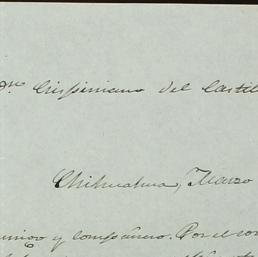 Crispiniano del Castil
Chihuahua, Marzo
amigo y compañero. Por el cor